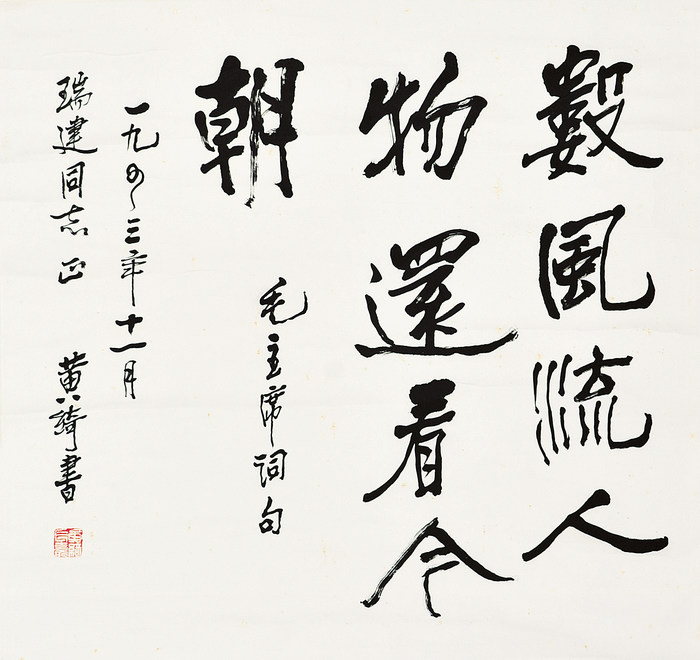 數風流人
物還看今
朝
毛主席词句
一九 三年十一月
瑞建同志正 黄綺書